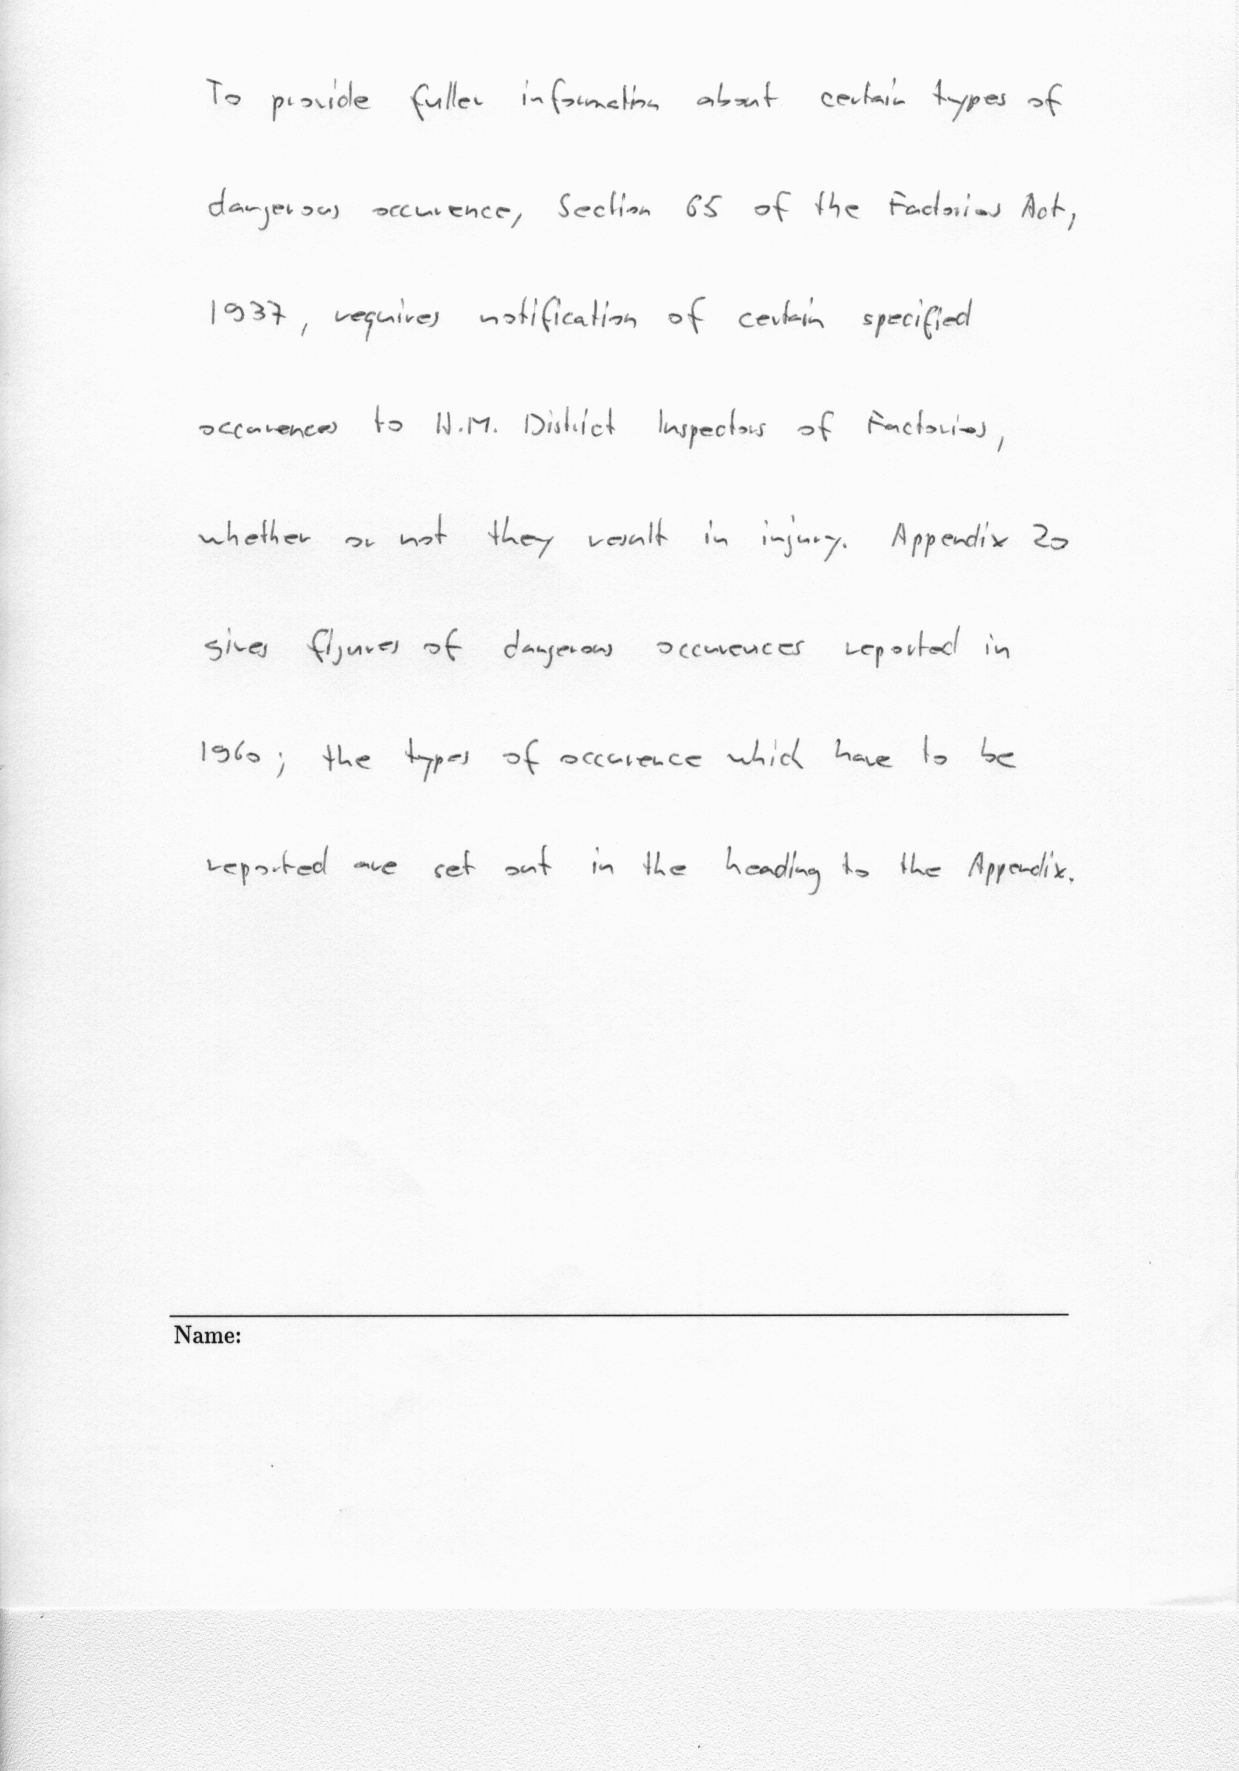 To provide fuller information about certain types of
dangerous occurence, Section 65 of the Factories Act,
1937, requires notification of certain specified
occurences to H.M. District Inspectors of Factories,
whether or not they result in injury. Appendix 20
gives figures of dangerous occurences reported in
1960; the types of occurence which have to be
reported are set out in the heading to the Appendix.
Name: